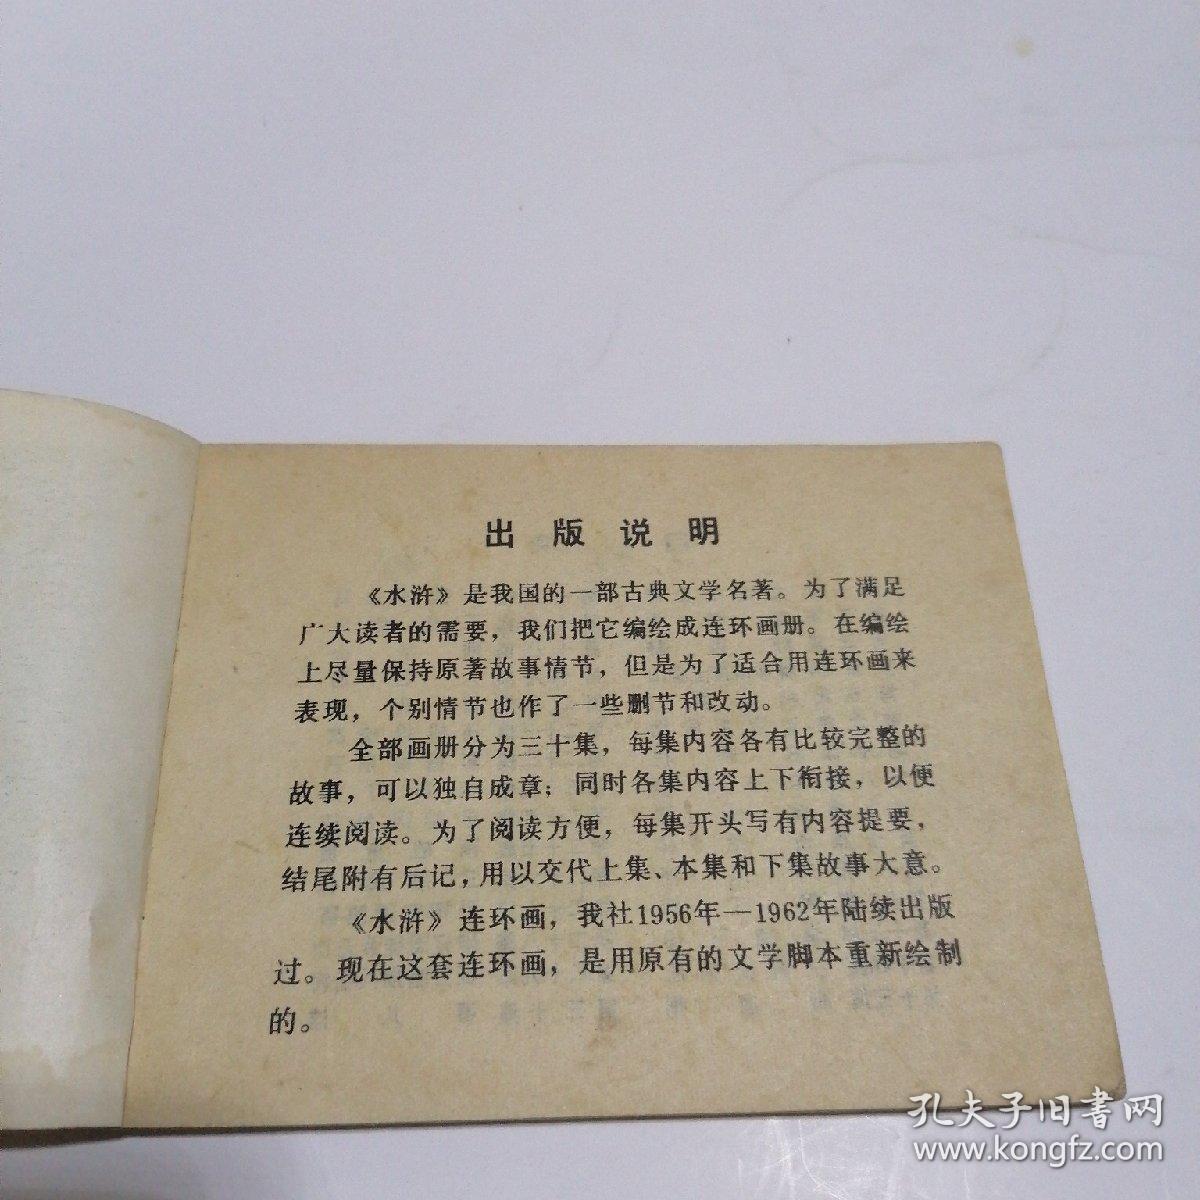 出版说明
《水浒》是我国的一部古典文学名著。为了满足
广大读者的需要，我们把它编绘成连环画册。在编绘
上尽量保持原著故事情节，但是为了适合用连环画来
表现，个别情节也作了一些删节和改动。
全部画册分为三十集，每集内容各有比较完整的
故事，可以独自成章；同时各集内容上下衔接，以便
连续阅读。为了阅读方便，每集开头写有内容提要，
结尾附有后记，用以交代上集、本集和下集故事大意。
《水浒》连环画，我社1956年—1962年陆续出版
过。现在这套连环画，是用原有的文学脚本重新绘制
的。
孔夫子旧书网
www.kongfz.com